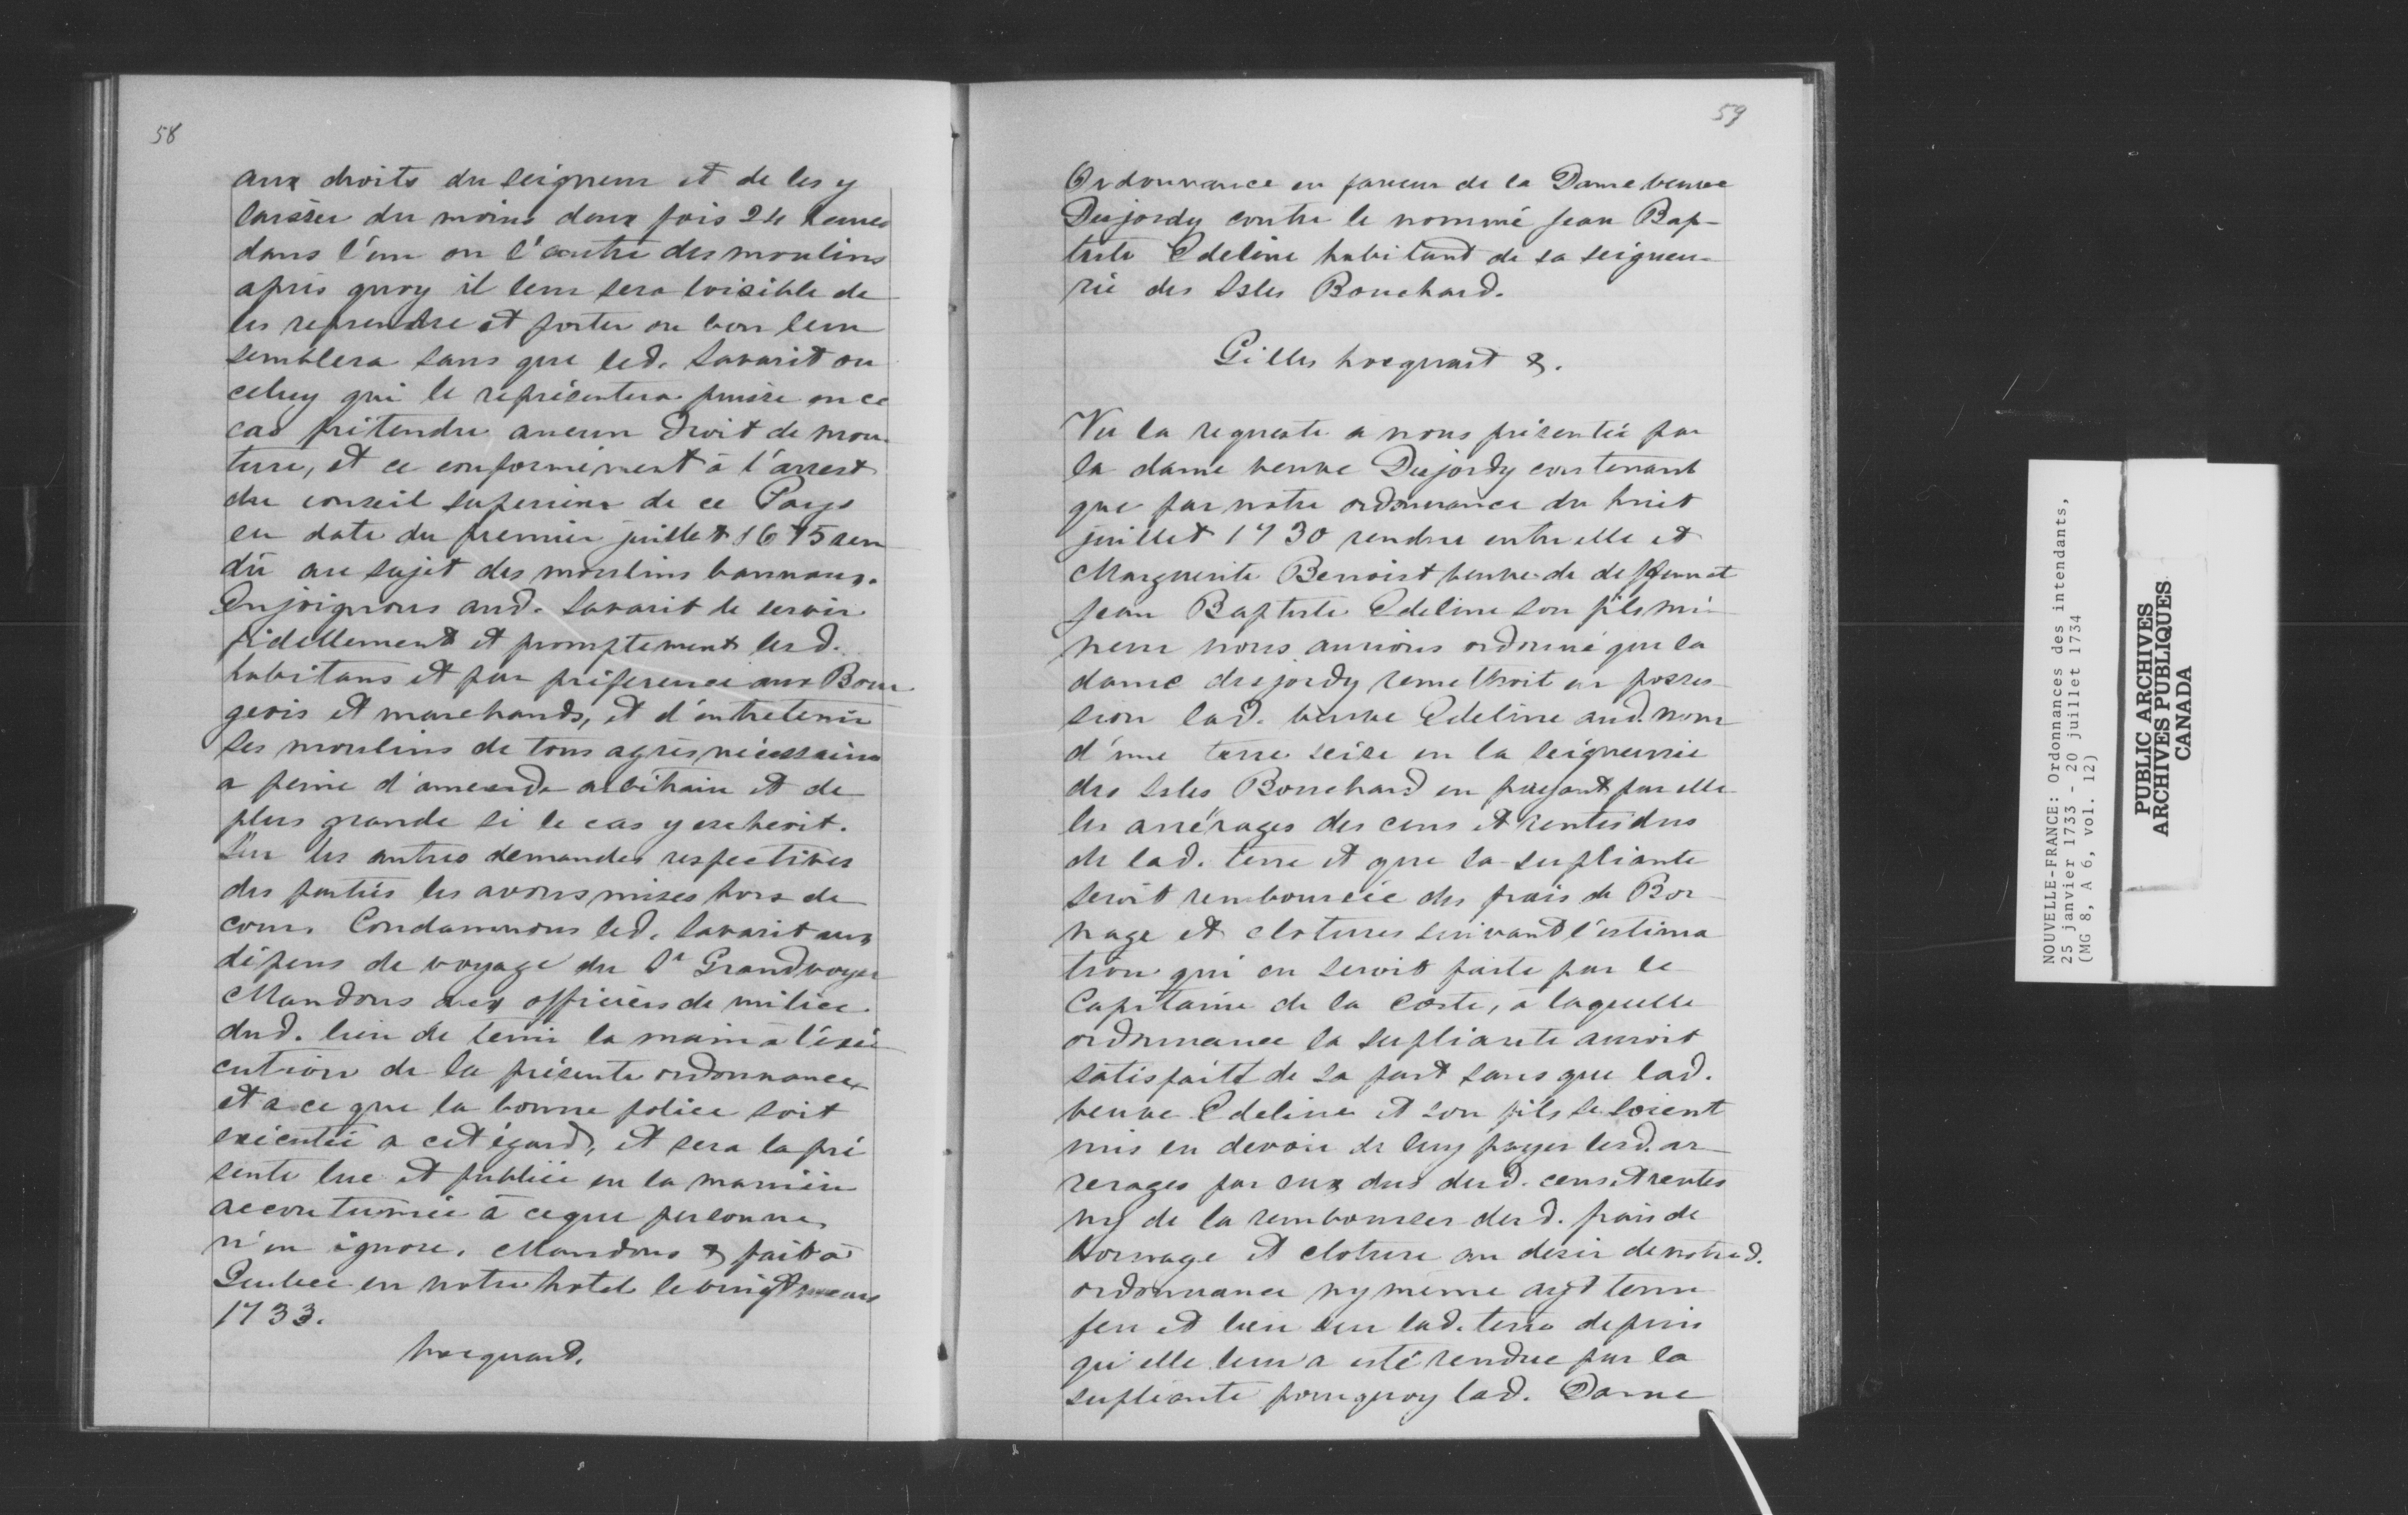 58
aux droits du seigneur et de les y
laisser du moins deux fois 24 heures
dans l'un ou l'autre des moulins
après quoy il leur sera loisible de
les reprendre et porter ou bon leur
semblera sans que led. Savarit ou
celuy qui le représentera puisse en ce
cas prétendre aucun droit de mou-
ture, et ce conformément à l'arrest
du conseil superieur de ce Pays
en date du premier juillet 1675 ren
du au sujet des moulins bannaux.
Enjoignons aud. Savarit de servir
fidellement et promptement lesd.
habitans et par préference aux Bour-
geois et marchands, et d'entretenir
ses moulins de tous agrès nécessaires
a peine d'amende arbitraire et de
plus grande si le cas y escheoit.
Sur les autres demandes respectives
des parties les avons mises hors de
cour. Condamnons led. Savarit aux
dépens de voyage du Sr Grandvoyer
Mandons aux officiers de milice
dud. lieu de tenir la main à l'exé
cution de la présente ordonnance
et a ce que la bonne police soit
exécutée a cet égard, et sera la pré
sente lue et publiée en la manière
accoutumée à ceque personne
n'en ignore. Mandons & fait à
Quebec en notre hotel le vingt mars
1733.
hocquard.
59
Ordonnance en faveur de la Dame veuve
Desjordy contre le nommé Jean Bap-
tiste Edeline habitant de sa seigneu-
rie des Isles Bouchard.
Gilles hocquart &.
Vu la requeste a nous présentée par
la dame veuve Desjordy contenant
que par notre ordonnance du huit
juillet 1730 rendue entre elle et
Marguerite Benoist veuve de deffunct
Jean Baptiste Edeline son fils mi-
neur nous aurions ordonné que la
dame desjordy remettroit en posses-
sion lad. veuve Edeline aud. nom
d'une terre seise en la seigneurie
des Isles Bouchard en payant par elle
les arrérages des cens et rentes dus
de lad. terre et que la supliante
seroit remboursée des frais de Bor-
nage et clotures suivant l'estima
tion qui en seroit faite par le
Capitaine de la Coste, à laquelle
ordonnance la supliante auroit
satisfaitt de sa part sans que lad.
veuve Edeline et son fils se soient
mis en devoir de luy payer lesd. ar-
rerages par eux dus desd. cens et rentes
ny de la rembourser desd. frais de
bornage et cloture au desir de notred.
ordonnance ny meme ayt tenu
feu et lieu sur lad. terre depuis
qu'elle leur a esté rendue par la
supliante pourquoy lad. Dame
NOUVELLE-FRANCE: Ordonnances des intendants,
25 janvier 1733 - 20 juillet 1734
(MG 8, A 6, vol. 12)
PUBLIC ARCHIVES
ARCHIVES PUBLIQUES
CANADA